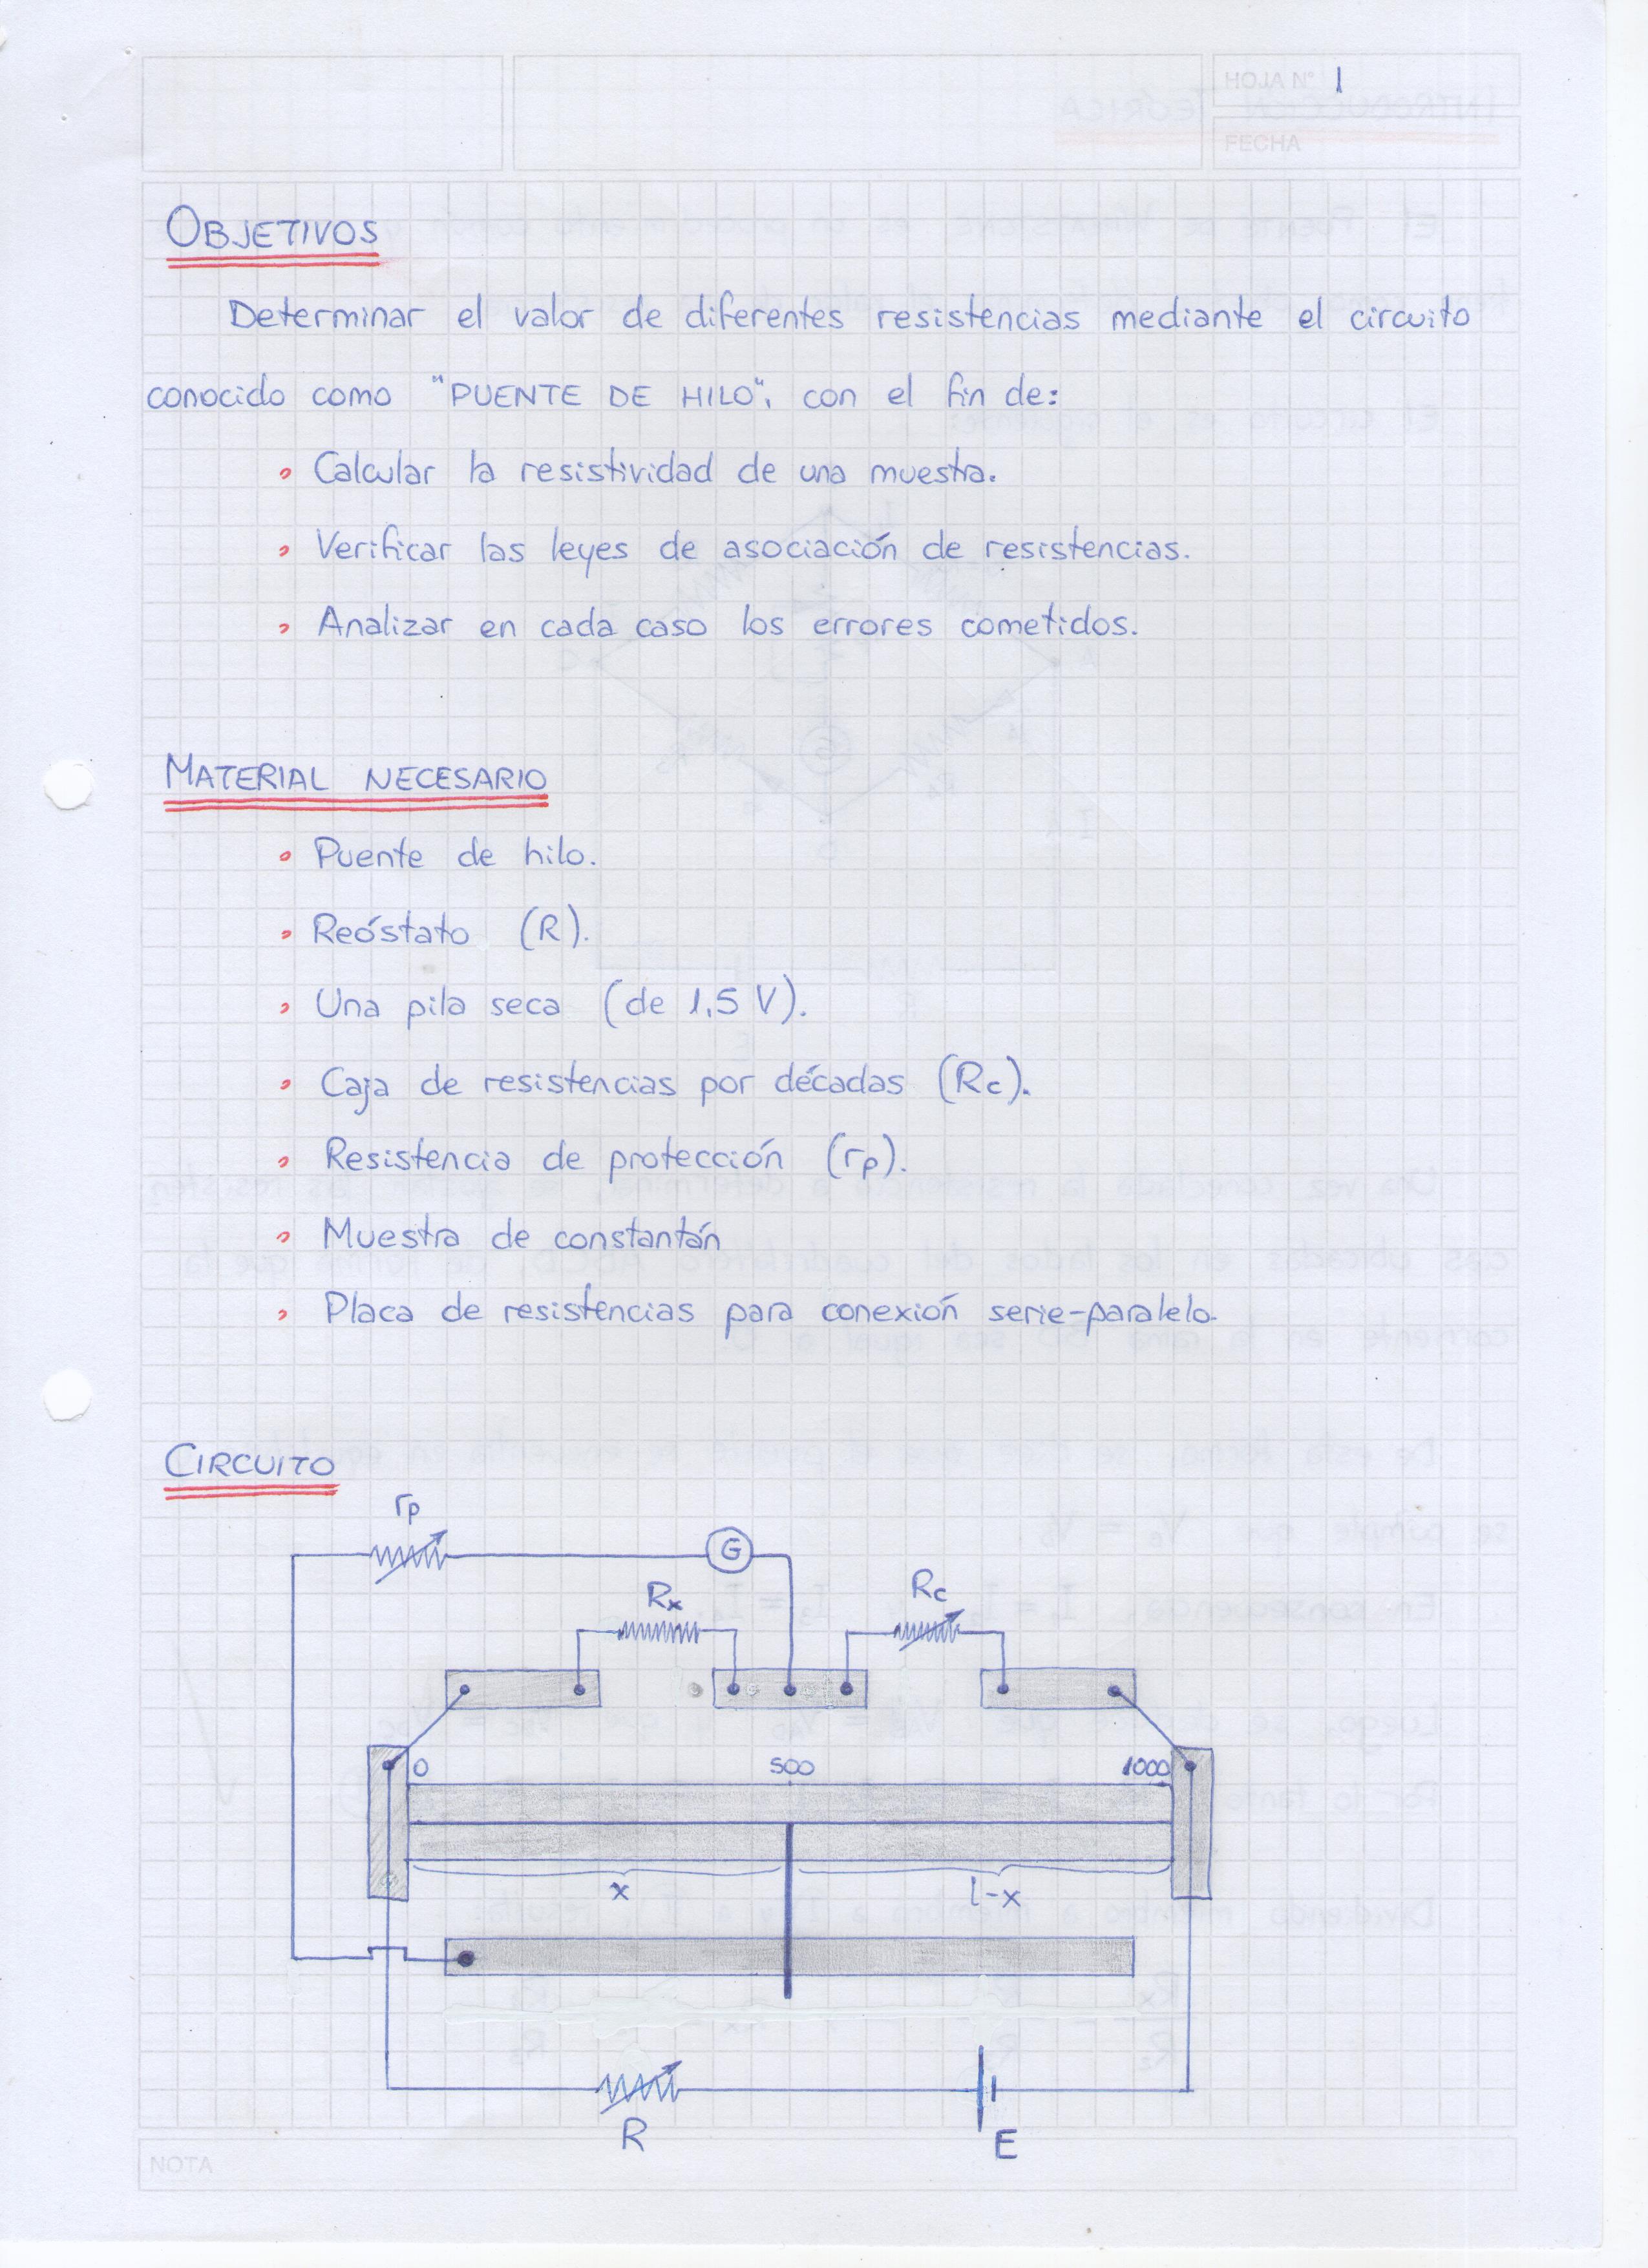 HOJA N° 1
FECHA
OBJETIVOS
Determinar el valor de diferentes resistencias mediante el circuito
conocido como "PUENTE DE HILO", con el fin de:
Calcular la resistividad de una muestra.
Verificar las leyes de asociación de resistencias.
Analizar en cada caso los errores cometidos.
MATERIAL NECESARIO
Puente de hilo.
Reóstato (R).
Una pila seca (de 1,5 V).
Caja de resistencias por décadas (Rc).
Resistencia de protección (rp).
Muestra de constantán
Placa de resistencias para conexión serie-paralelo.
CIRCUITO
rp
G
Rx
Rc
0 500 1000
x
l-x
R
E
NOTA